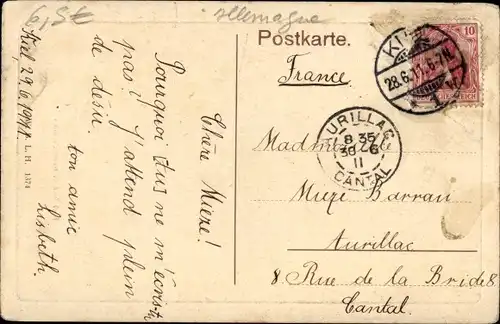 6,5€
allemagne
Postkarte.
France
KIEL
28.6.11.6-7N.
1
10
DEUTSCHES REICH
AURILLAC
8 35
30 6
11
CANTAL
Mademoiselle
Mieze Barran
Aurillac
8 Rue de la Bride 8
Cantal.
Kiel, 29.6.1911.
Chère Mieze!
Pourquoi (tu) ne m'écris-tu
pas? J'attend plein
de désir.
ton amie
Lisbeth
L. H. 1574